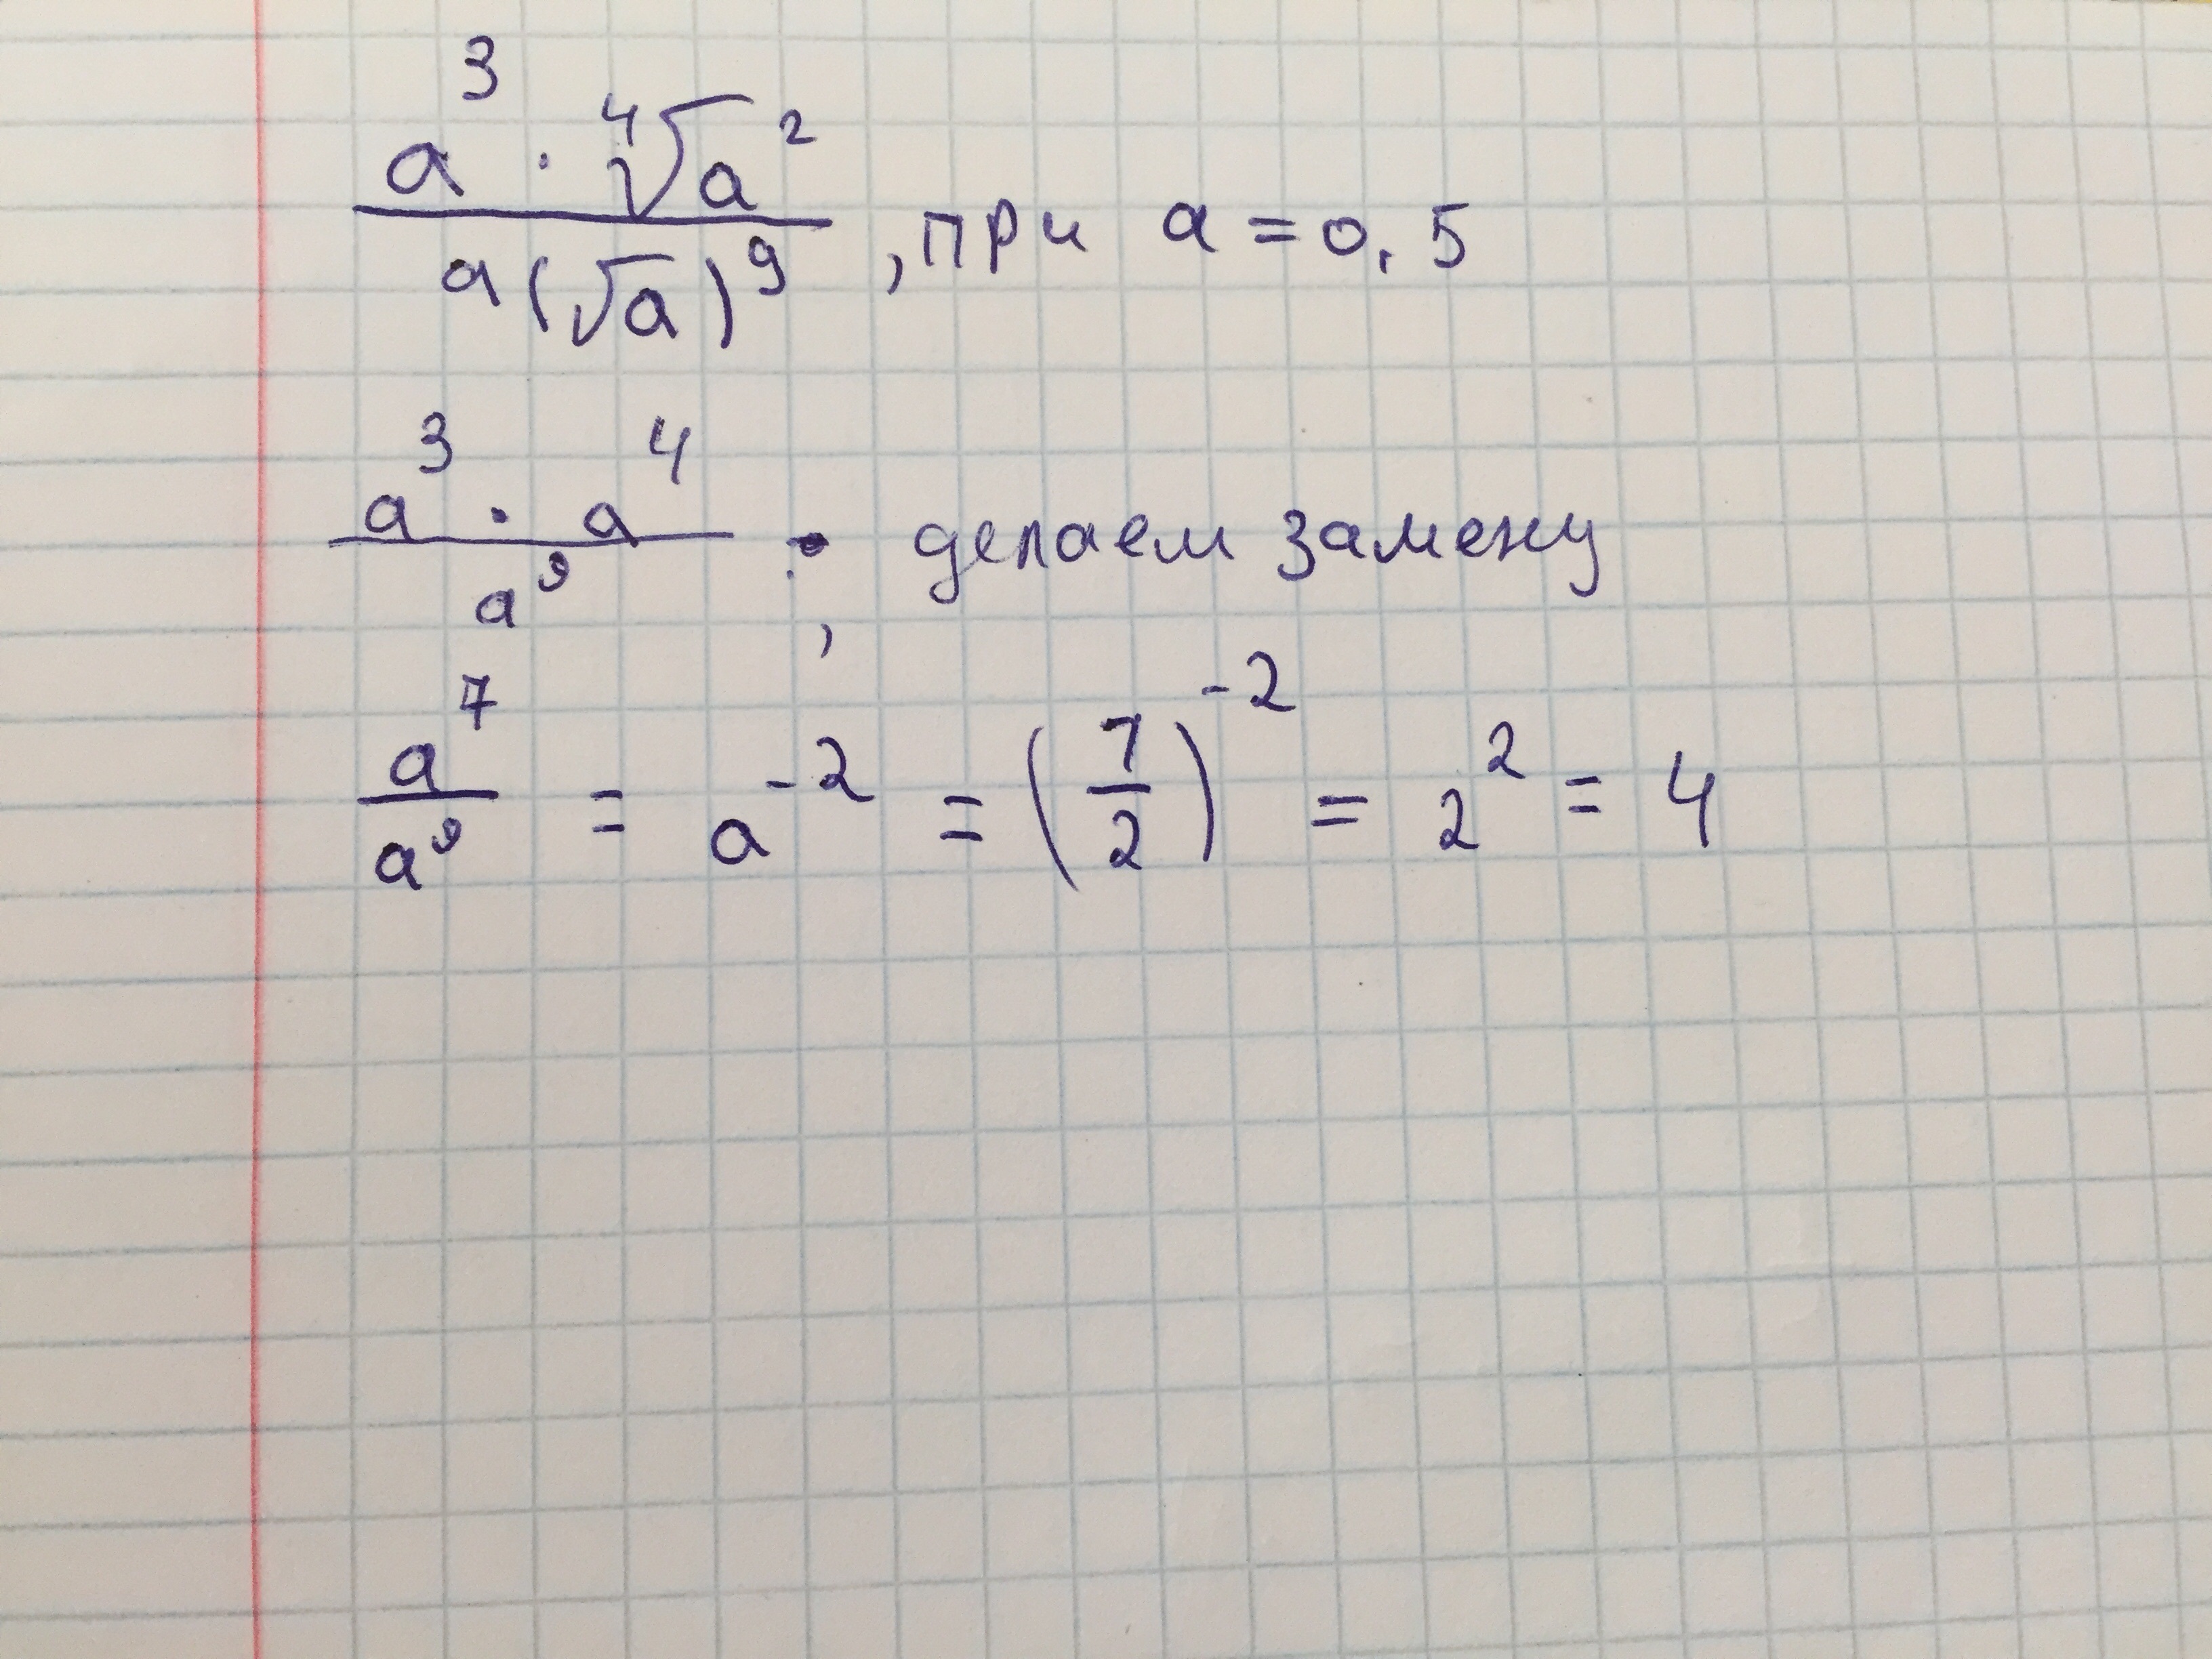 a³ · ⁴√a² / a(√a)⁹ , при a = 0,5
a³ · a⁴ / a⁹ , делаем замену
a⁷ / a⁹ = a⁻² = (1/2)⁻² = 2² = 4